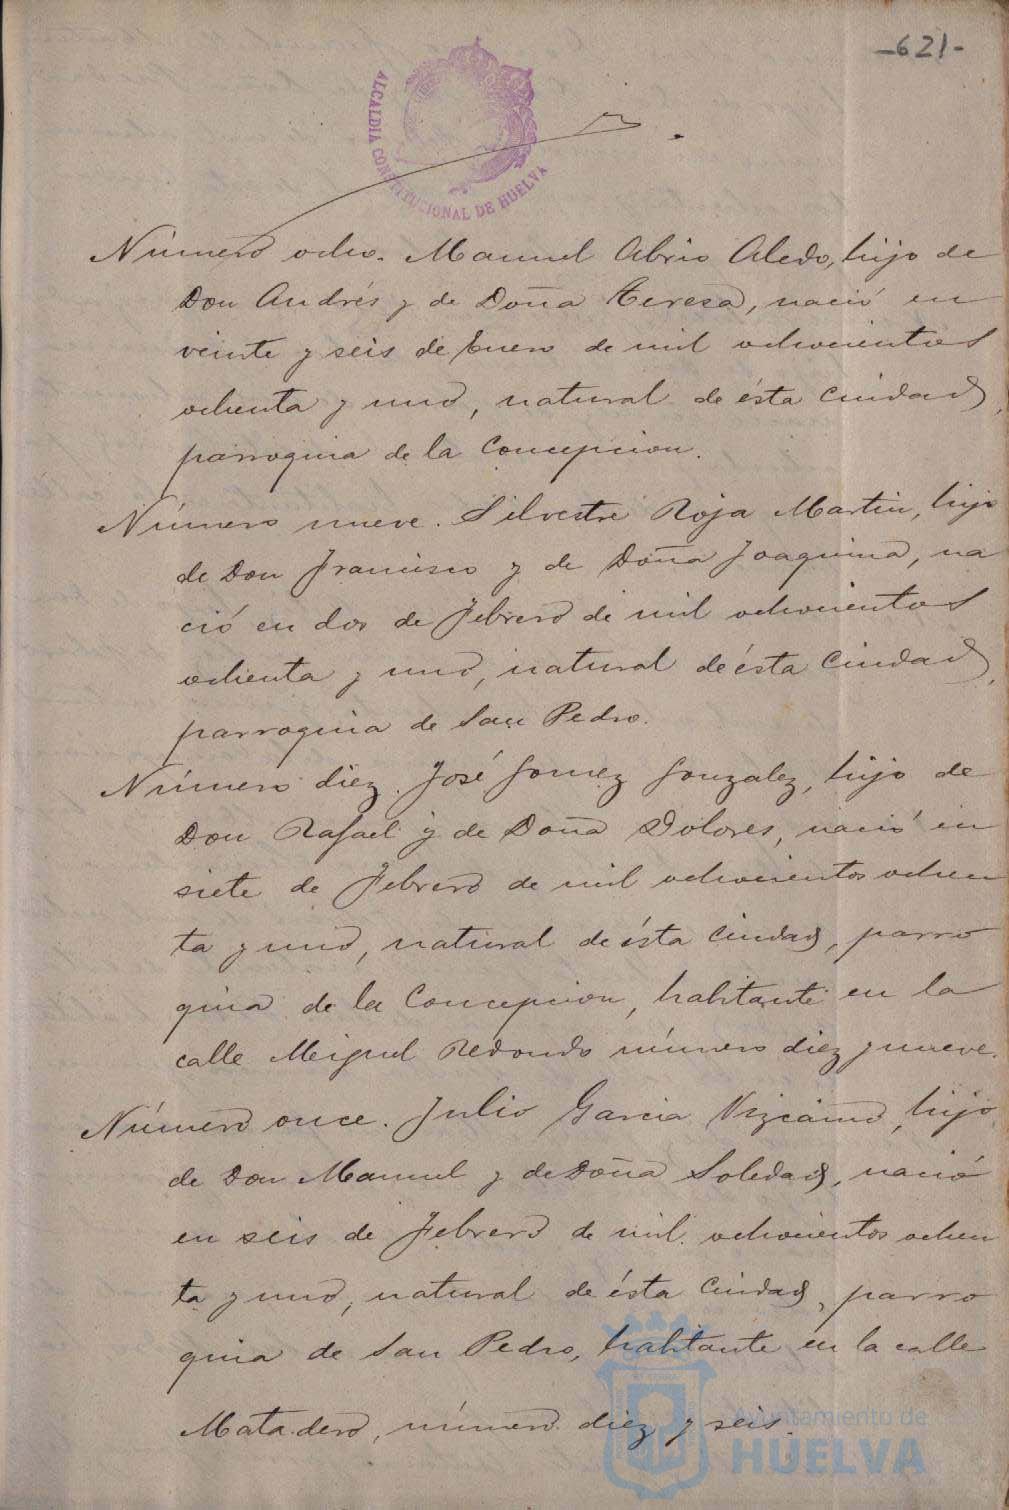 -621-
ALCALDIA CONSTITUCIONAL DE HUELVA
Número ocho. Manuel Abrio Aledo, hijo de
Don Andrés y de Doña Teresa, nació en
veinte y seis de Enero de mil ochocientos
ochenta y uno, natural de ésta Ciudad,
parroquia de la Concepcion.
Número nueve. Silvestre Roja Martin, hijo
de Don Francisco y de Doña Joaquina, na
ció en dos de Febrero de mil ochocientos
ochenta y uno, natural de ésta Ciudad,
parroquia de San Pedro.
Número diez. José Gomez Gonzalez, hijo de
Don Rafael y de Doña Dolores, nació en
siete de Febrero de mil ochocientos ochen
ta y uno, natural de ésta Ciudad, parro
quia de la Concepcion, habitante en la
calle Miguel Redondo número diez y nueve.
Número once. Julio Garcia Vizcaino, hijo
de Don Manuel y de Doña Soledad, nació
en seis de Febrero de mil ochocientos ochen
ta y uno, natural de ésta Ciudad, parro
quia de San Pedro, habitante en la calle
Matadero, número diez y seis.
Ayuntamiento de
HUELVA